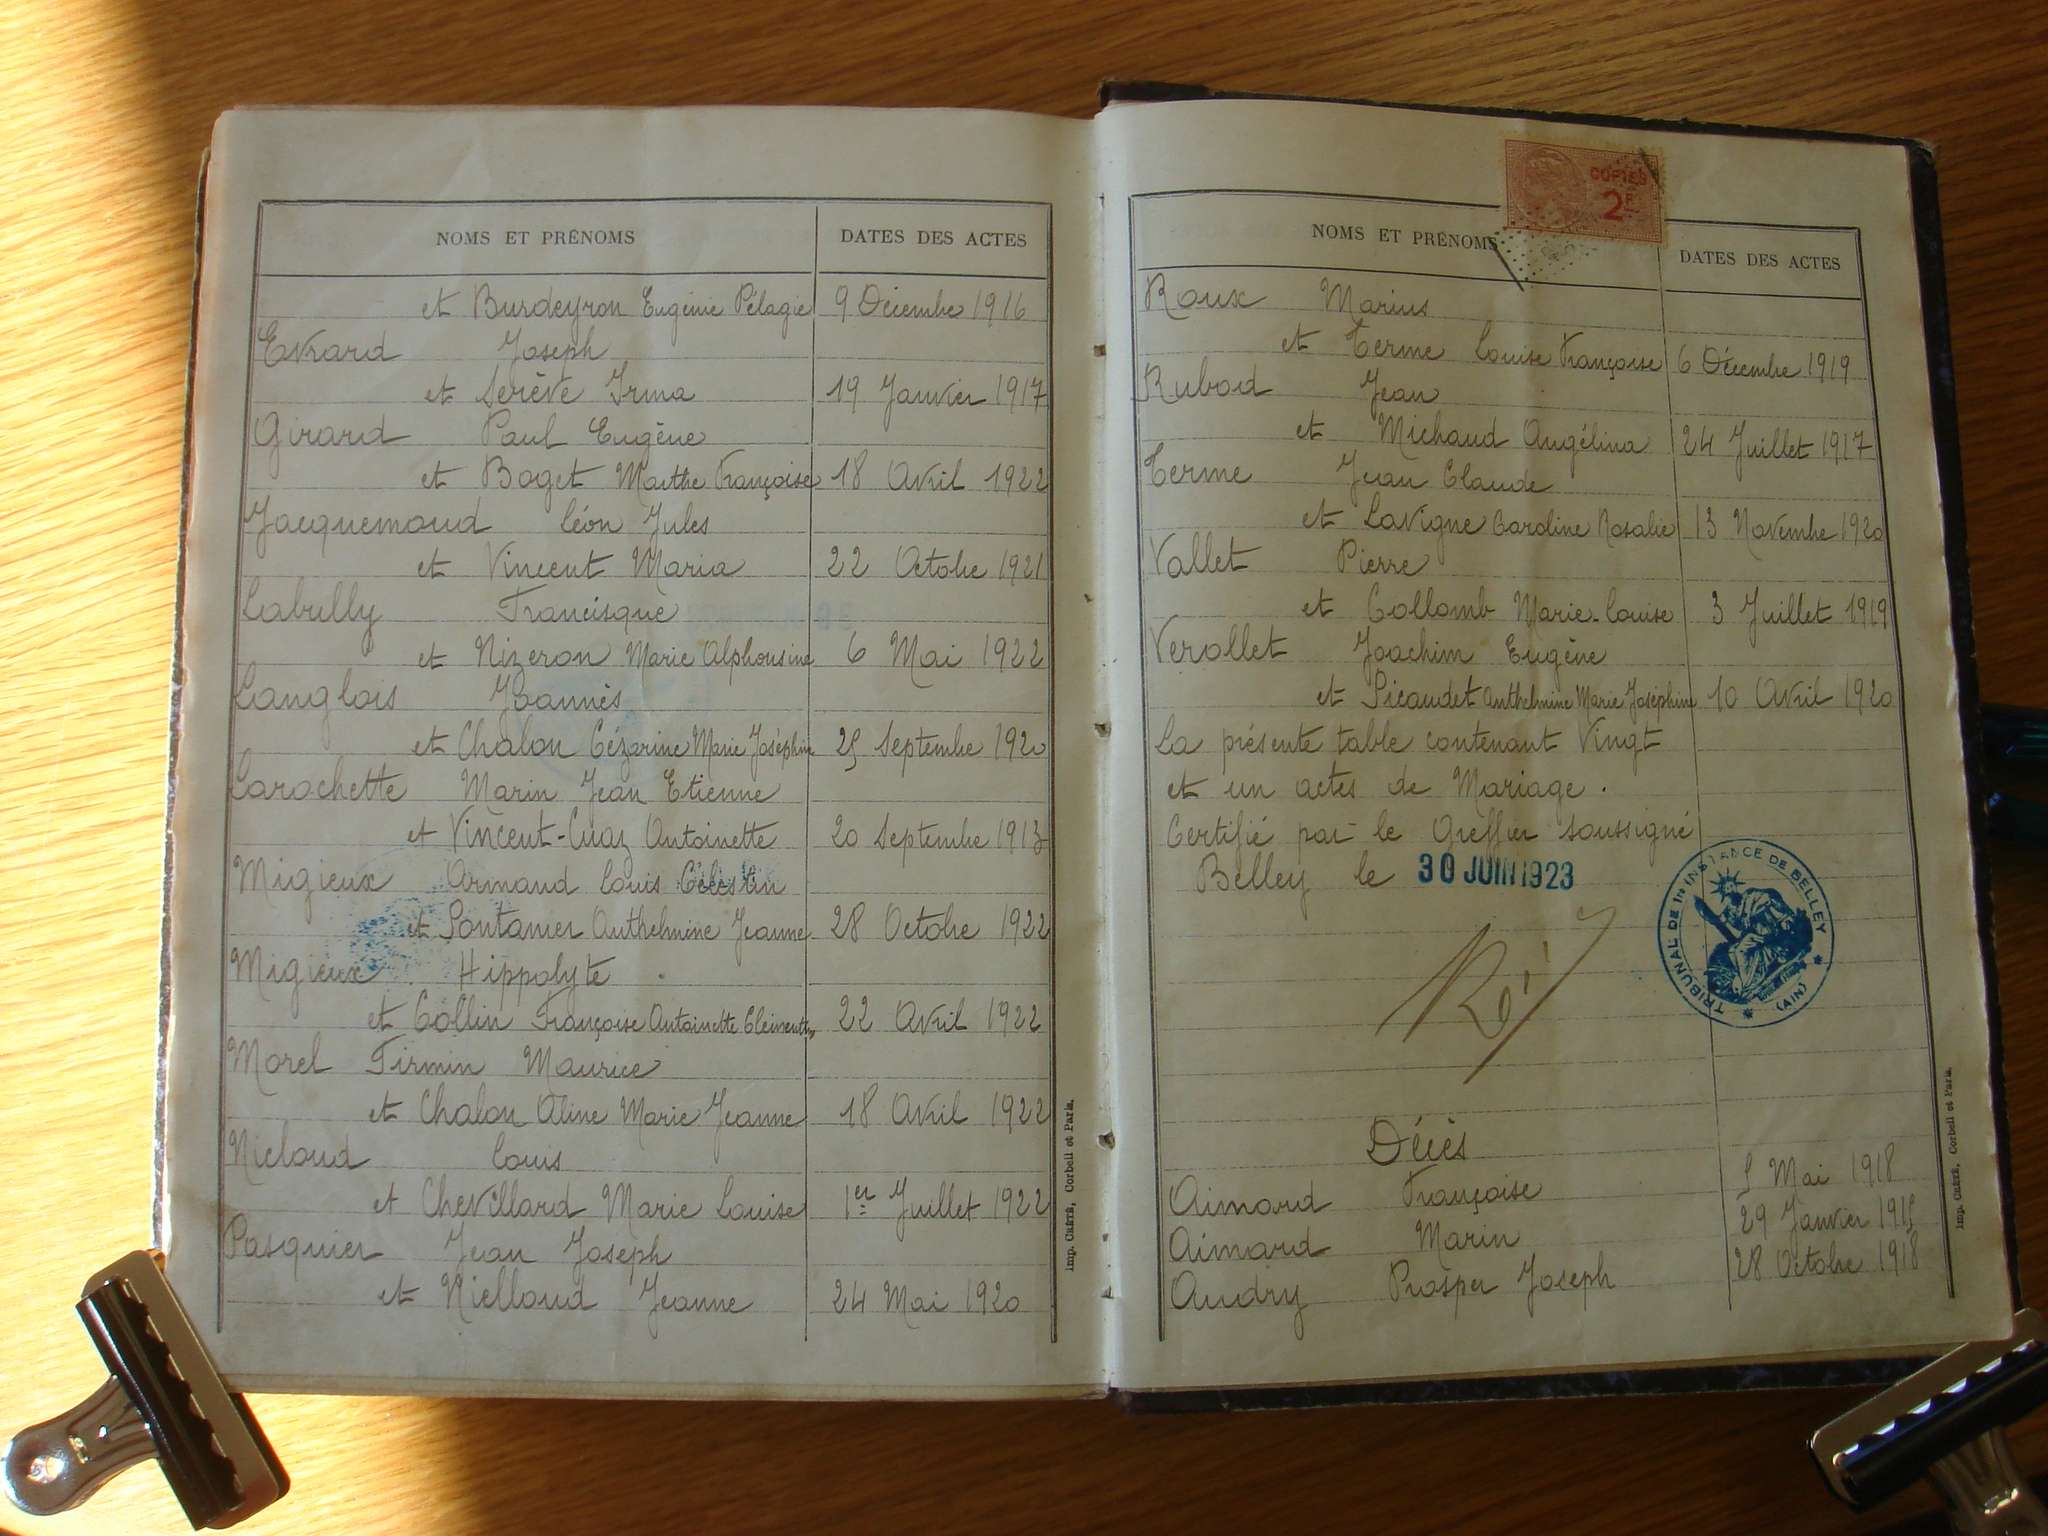 NOMS ET PRÉNOMS DATES DES ACTES
et Burdeyron Eugénie Pélagie 9 Décembre 1916
Evrard Joseph
et Serève Irma 19 Janvier 1917
Girard Paul Eugène
et Boget Marthe Françoise 18 Avril 1922
Jacquemoud Léon Jules
et Vincent Maria 22 Octobre 1921
Labully Francisque
et Nizeron Marie Alphonsine 6 Mai 1922
Langlois Joannès
et Chalon Cézarine Marie Joséphine 25 Septembre 1920
Larochette Marin Jean Etienne
et Vincent-Cuaz Antoinette 20 Septembre 1913
Migieux Armand Louis Célestin
et Pontanier Anthelmine Jeanne 28 Octobre 1922
Migieux Hippolyte
et Collin Françoise Antoinette Clémentine 22 Avril 1922
Morel Firmin Maurice
et Chalon Aline Marie Jeanne 18 Avril 1922
Nicloud Louis
et Chevillard Marie Louise 1er Juillet 1922
Pasquier Jean Joseph
et Nielloud Jeanne 24 Mai 1920
Imp. CRÉTÉ, Corbeil et Paris.
COPIES
2F
NOMS ET PRÉNOMS DATES DES ACTES
Roux Marius
et Terme Louise Françoise 6 Décembre 1919
Rubod Jean
et Michaud Angélina 24 Juillet 1917
Terme Jean Claude
et Lavigne Caroline Rosalie 13 Novembre 1920
Vallet Pierre
et Collomb Marie-Louise 3 Juillet 1919
Verollet Joachim Eugène
et Picaudet Anthelmine Marie Joséphine 10 Avril 1920
La présente table contenant Vingt
et un actes de Mariage.
Certifié par le Greffier soussigné
Belley le 30 JUIN 1923
TRIBUNAL DE 1re INSTANCE DE BELLEY
(AIN)
Décès
Aimard Françoise Mai 1918
Aimard Marin 29 Janvier
Audry Prosper Joseph 28 Octobre 1918
Imp. CRÉTÉ, Corbeil et Paris.